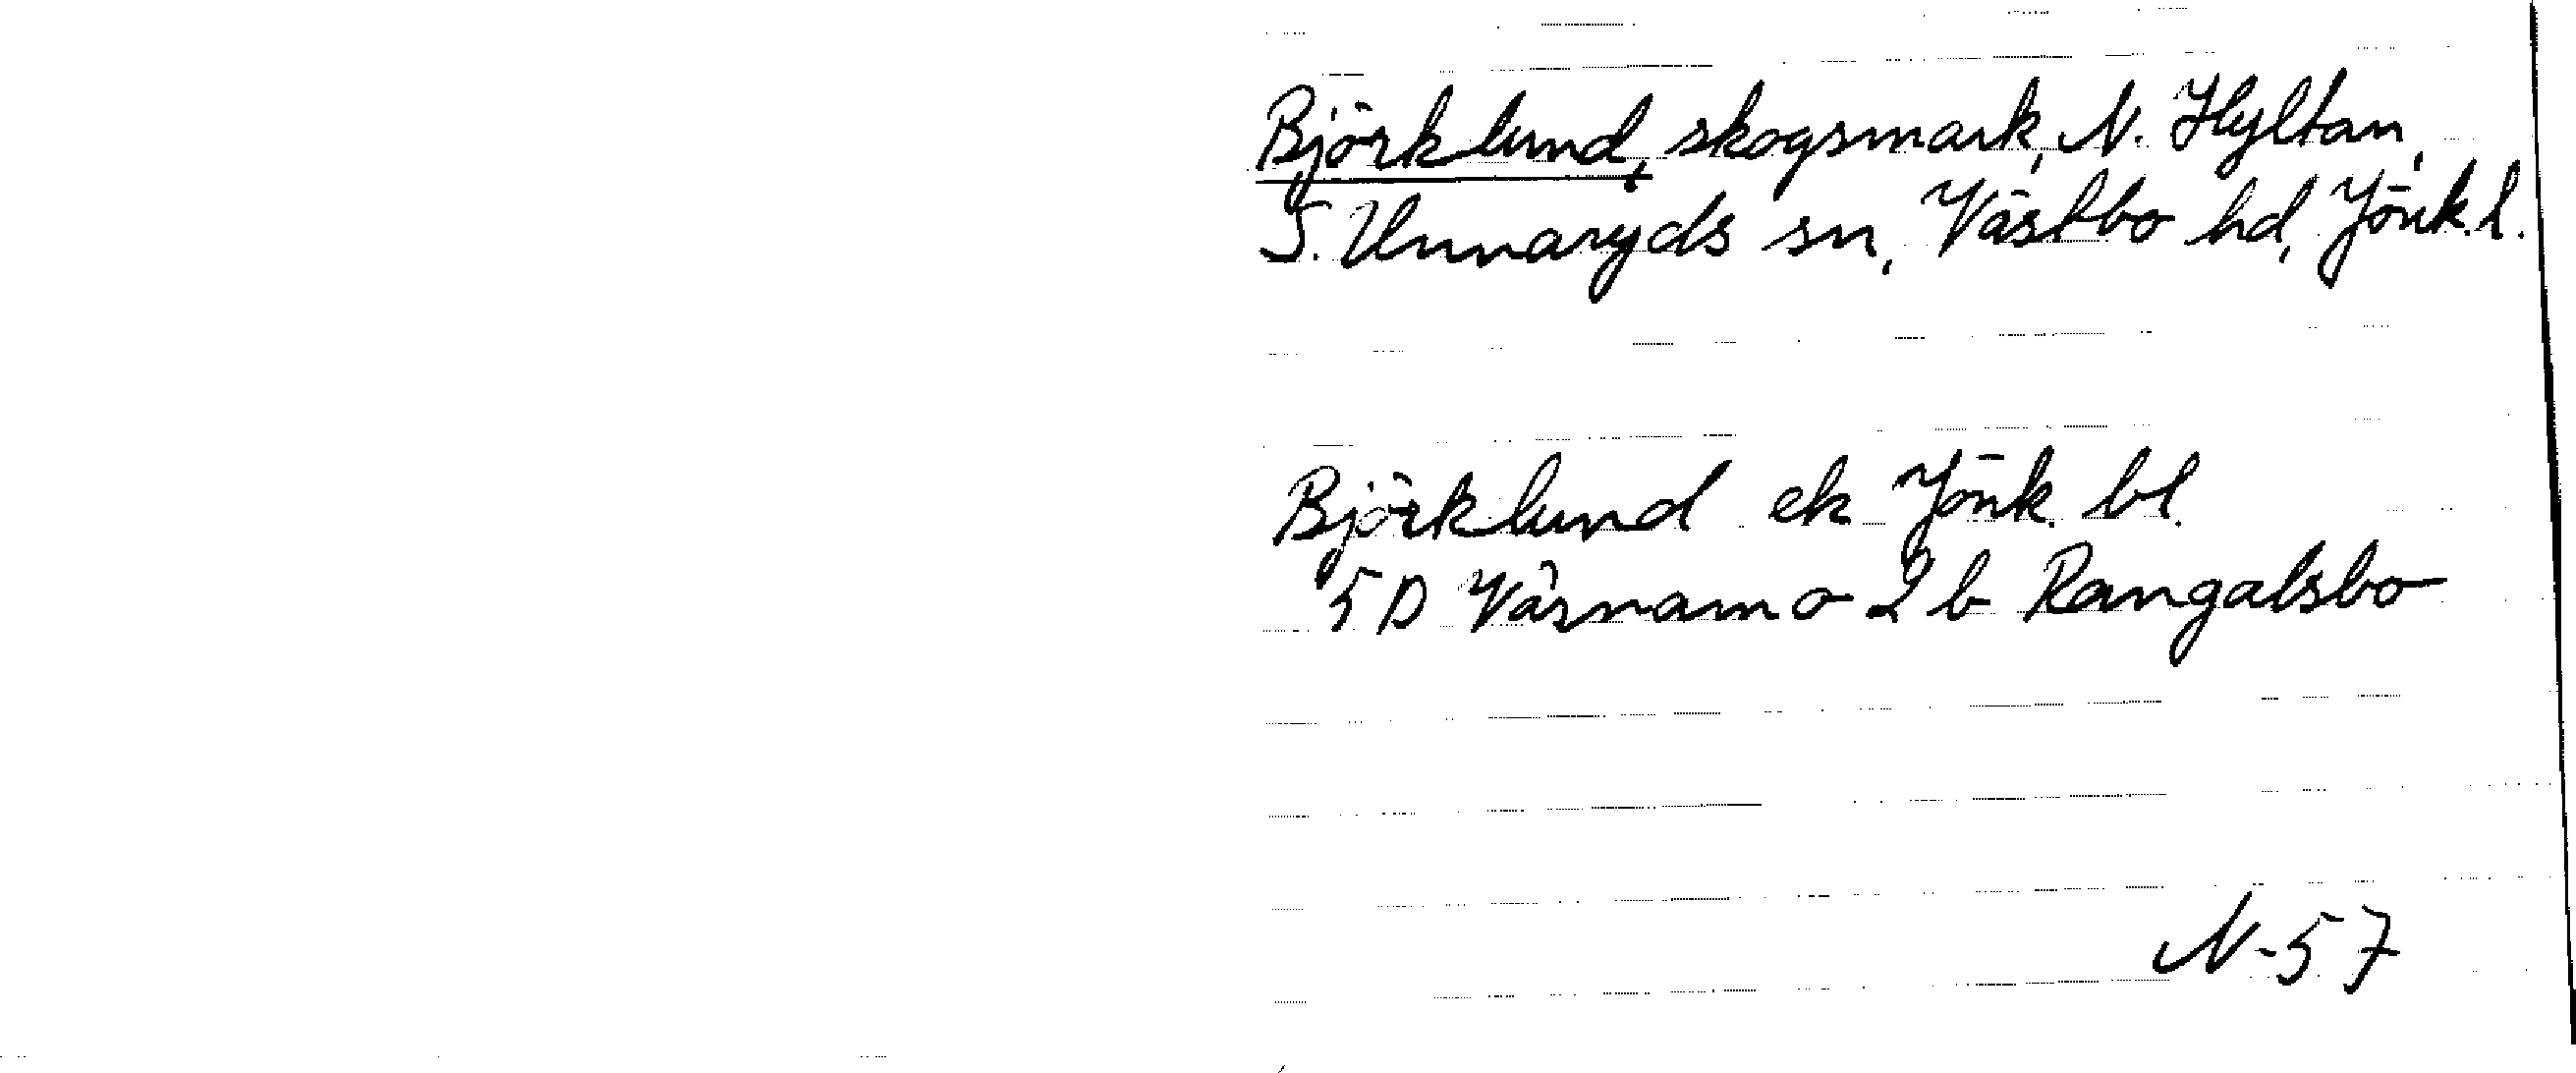 Björklund, skogsmark, N. Hyltan,
S. Unnaryds sn, Västbo hd, Jönk. l.
Björklund ek Jönk. bl.
5D Värnamo 2b Rangalsbo
N-57